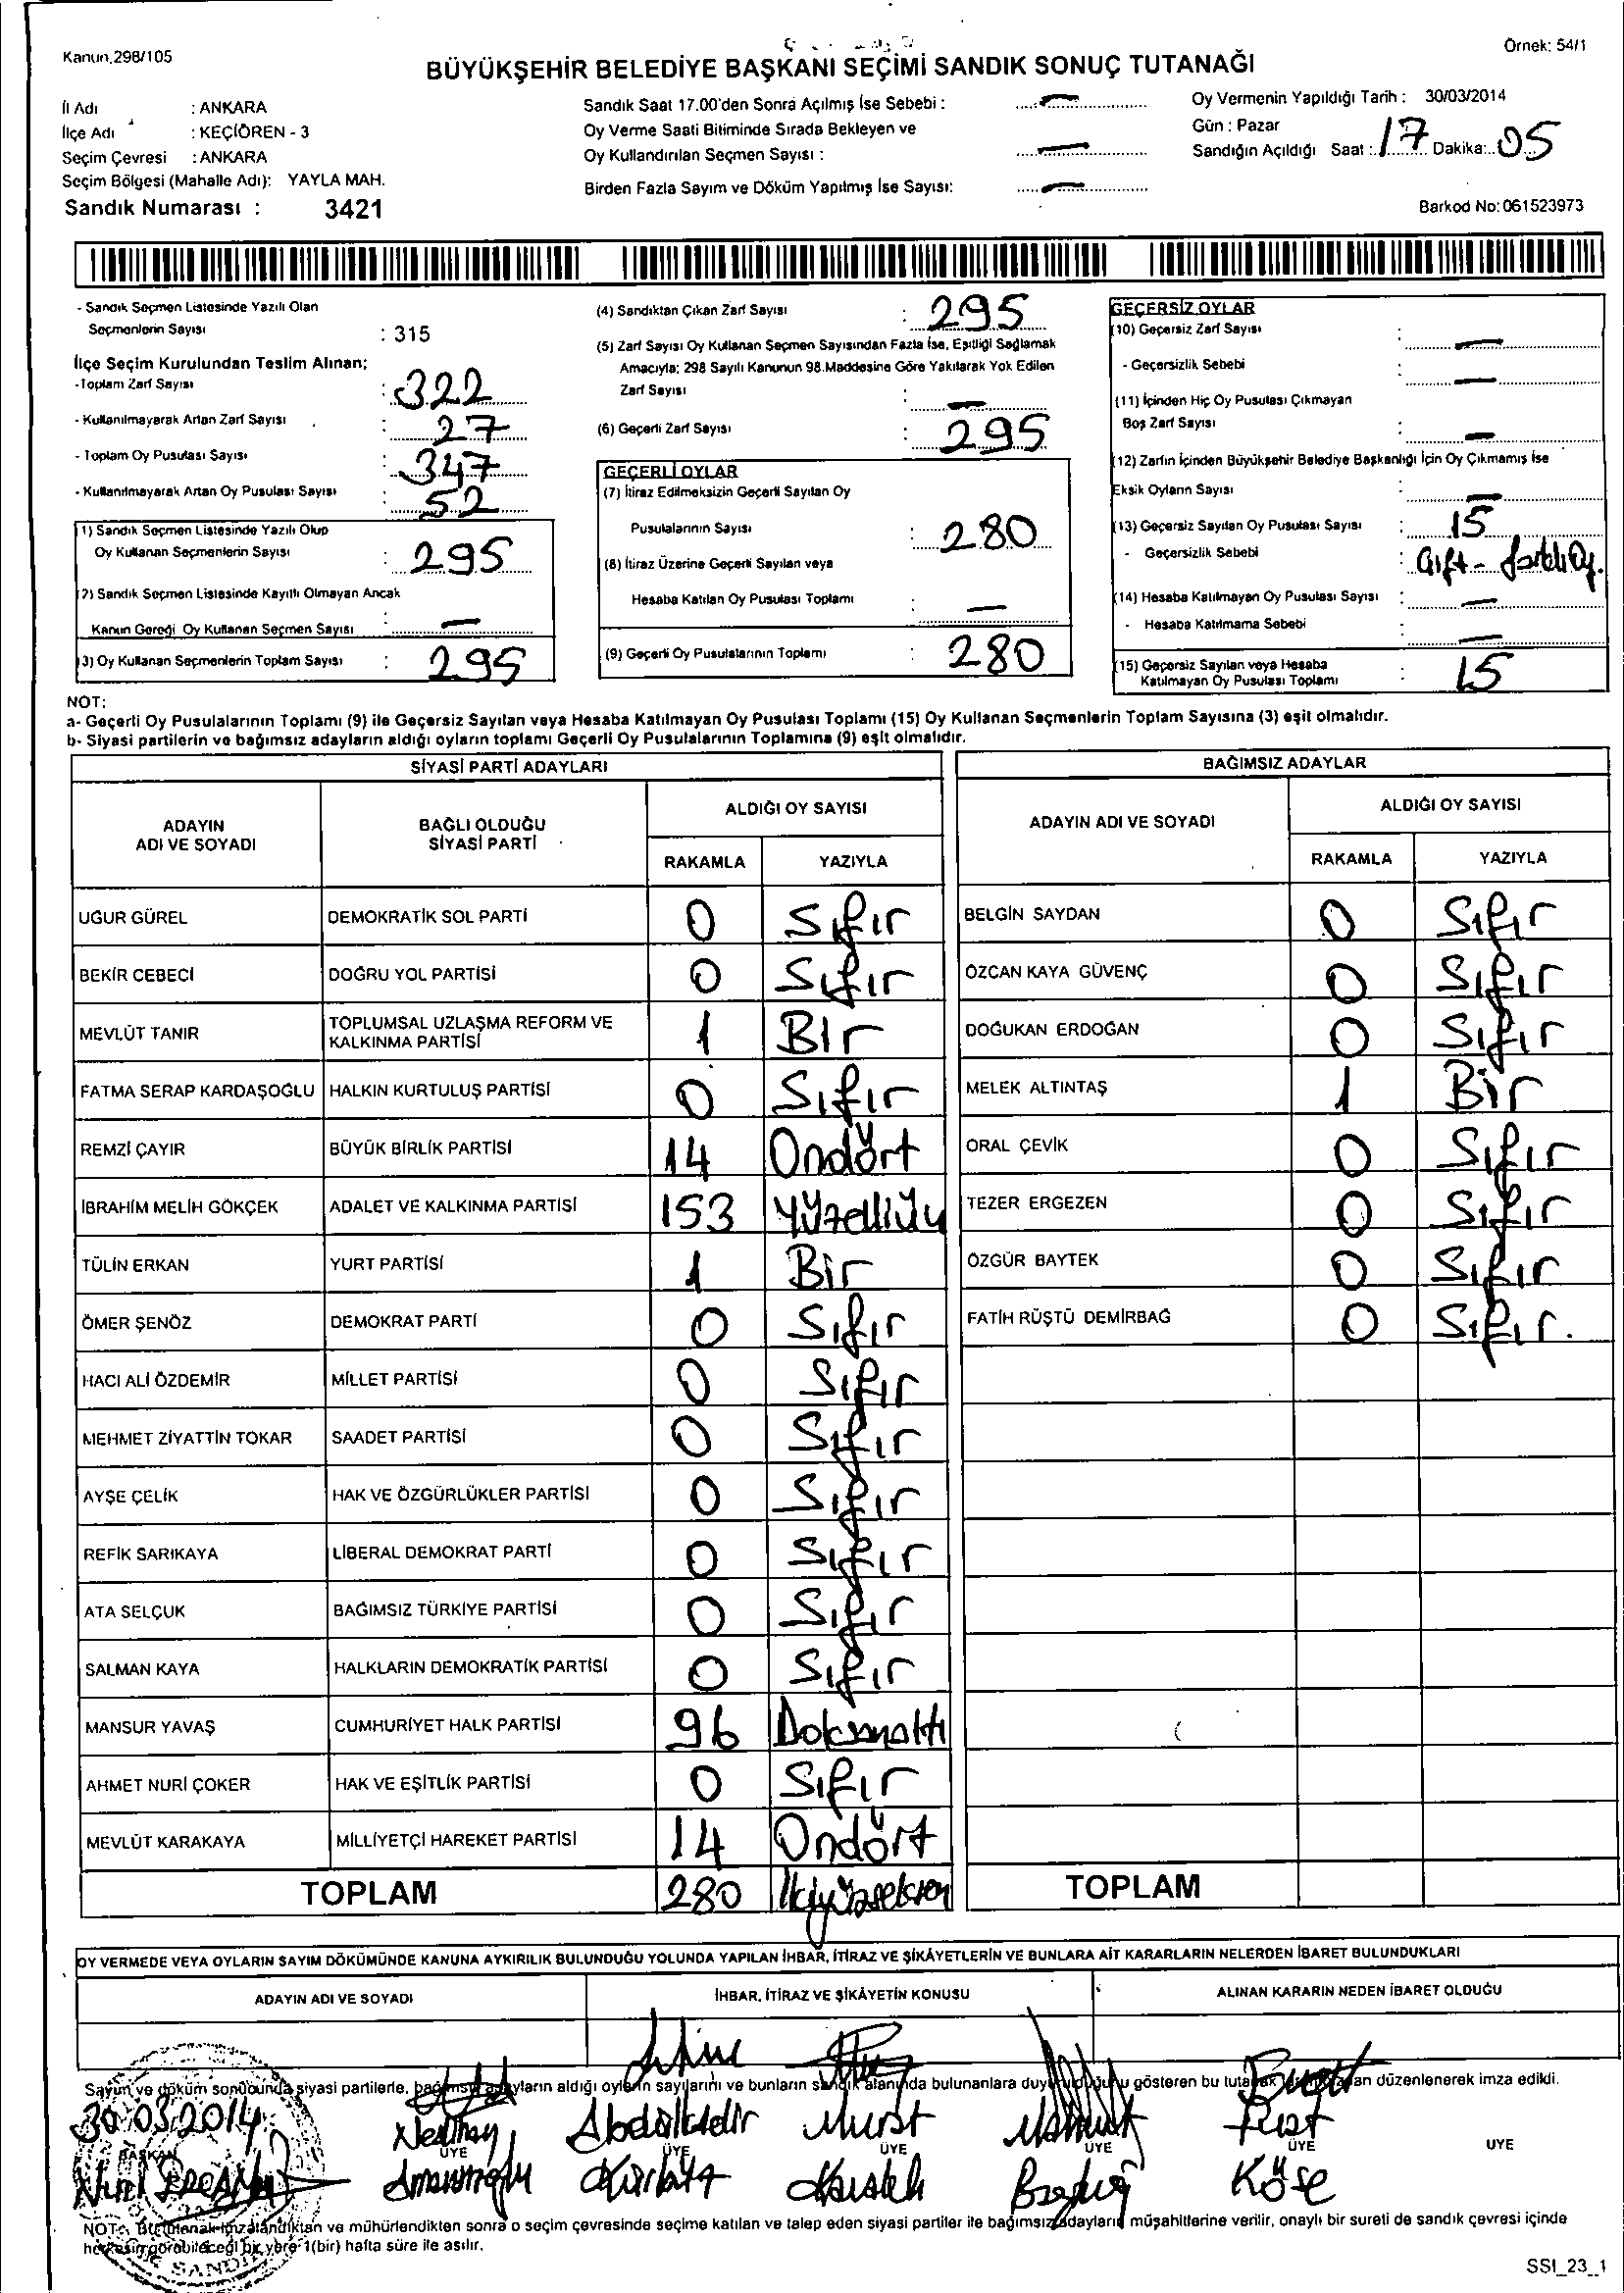 Kanun.298/105
Örnek: 54/1
BÜYÜKŞEHİR BELEDİYE BAŞKANI SEÇİMİ SANDIK SONUÇ TUTANAĞI
İl Adı : ANKARA
İlçe Adı : KEÇİÖREN - 3
Seçim Çevresi : ANKARA
Seçim Bölgesi (Mahalle Adı): YAYLA MAH.
Sandık Numarası : 3421
Sandık Saat 17.00'den Sonra Açılmış İse Sebebi : —
Oy Verme Saati Bitiminde Sırada Bekleyen ve
Oy Kullandırılan Seçmen Sayısı : —
Birden Fazla Sayım ve Döküm Yapılmış İse Sayısı: —
Oy Vermenin Yapıldığı Tarih : 30/03/2014
Gün : Pazar
Sandığın Açıldığı Saat : 17 Dakika: 05
Barkod No: 061523973
- Sandık Seçmen Listesinde Yazılı Olan
Seçmenlerin Sayısı : 315
İlçe Seçim Kurulundan Teslim Alınan;
- Toplam Zarf Sayısı : 322
- Kullanılmayarak Artan Zarf Sayısı : 27
- Toplam Oy Pusulası Sayısı : 347
- Kullanılmayarak Artan Oy Pusulası Sayısı : 52
(1) Sandık Seçmen Listesinde Yazılı Olup
Oy Kullanan Seçmenlerin Sayısı : 295
(2) Sandık Seçmen Listesinde Kayıtlı Olmayan Ancak
Kanun Gereği Oy Kullanan Seçmen Sayısı : —
(3) Oy Kullanan Seçmenlerin Toplam Sayısı : 295
(4) Sandıktan Çıkan Zarf Sayısı : 295
(5) Zarf Sayısı Oy Kullanan Seçmen Sayısından Fazla İse, Eşitliği Sağlamak
Amacıyla; 298 Sayılı Kanunun 98.Maddesine Göre Yakılarak Yok Edilen
Zarf Sayısı : —
(6) Geçerli Zarf Sayısı : 295
GEÇERLİ OYLAR
(7) İtiraz Edilmeksizin Geçerli Sayılan Oy
Pusulalarının Sayısı : 280
(8) İtiraz Üzerine Geçerli Sayılan veya
Hesaba Katılan Oy Pusulası Toplamı : —
(9) Geçerli Oy Pusulalarının Toplamı : 280
GEÇERSİZ OYLAR
(10) Geçersiz Zarf Sayısı : —
- Geçersizlik Sebebi : —
(11) İçinden Hiç Oy Pusulası Çıkmayan
Boş Zarf Sayısı : —
(12) Zarfın İçinden Büyükşehir Belediye Başkanlığı İçin Oy Çıkmamış İse
Eksik Oyların Sayısı : —
(13) Geçersiz Sayılan Oy Pusulası Sayısı : 15
- Geçersizlik Sebebi : Çift - farklı Oy.
(14) Hesaba Katılmayan Oy Pusulası Sayısı : —
- Hesaba Katılmama Sebebi : —
(15) Geçersiz Sayılan veya Hesaba
Katılmayan Oy Pusulası Toplamı : 15
NOT:
a- Geçerli Oy Pusulalarının Toplamı (9) ile Geçersiz Sayılan veya Hesaba Katılmayan Oy Pusulası Toplamı (15) Oy Kullanan Seçmenlerin Toplam Sayısına (3) eşit olmalıdır.
b- Siyasi partilerin ve bağımsız adayların aldığı oyların toplamı Geçerli Oy Pusulalarının Toplamına (9) eşit olmalıdır.
SİYASİ PARTİ ADAYLARI
ADAYIN ADI VE SOYADI
BAĞLI OLDUĞU SİYASİ PARTİ
ALDIĞI OY SAYISI
RAKAMLA YAZIYLA
UĞUR GÜREL DEMOKRATİK SOL PARTİ 0 Sıfır
BEKİR CEBECİ DOĞRU YOL PARTİSİ 0 Sıfır
MEVLÜT TANIR TOPLUMSAL UZLAŞMA REFORM VE KALKINMA PARTİSİ 1 BIr
FATMA SERAP KARDAŞOĞLU HALKIN KURTULUŞ PARTİSİ 0 Sıfır
REMZİ ÇAYIR BÜYÜK BİRLİK PARTİSİ 14 Ondört
İBRAHİM MELİH GÖKÇEK ADALET VE KALKINMA PARTİSİ 153
TÜLİN ERKAN YURT PARTİSİ 1 Bir
ÖMER ŞENÖZ DEMOKRAT PARTİ 0 Sıfır
HACI ALİ ÖZDEMİR MİLLET PARTİSİ 0 Sıfır
MEHMET ZİYATTİN TOKAR SAADET PARTİSİ 0 Sıfır
AYŞE ÇELİK HAK VE ÖZGÜRLÜKLER PARTİSİ 0 Sıfır
REFİK SARIKAYA LİBERAL DEMOKRAT PARTİ 0 Sıfır
ATA SELÇUK BAĞIMSIZ TÜRKİYE PARTİSİ 0 Sıfır
SALMAN KAYA HALKLARIN DEMOKRATİK PARTİSİ 0 Sıfır
MANSUR YAVAŞ CUMHURİYET HALK PARTİSİ 96 Doksanaltı
AHMET NURİ ÇOKER HAK VE EŞİTLİK PARTİSİ 0 Sıfır
MEVLÜT KARAKAYA MİLLİYETÇİ HAREKET PARTİSİ 14 Ondört
TOPLAM 280 İkiyüzseksen
BAĞIMSIZ ADAYLAR
ADAYIN ADI VE SOYADI
ALDIĞI OY SAYISI
RAKAMLA YAZIYLA
BELGİN SAYDAN 0 Sıfır
ÖZCAN KAYA GÜVENÇ 0 Sıfır
DOĞUKAN ERDOĞAN 0 Sıfır
MELEK ALTINTAŞ 1 Bir
ORAL ÇEVİK 0 Sıfır
TEZER ERGEZEN 0 Sıfır
ÖZGÜR BAYTEK 0 Sıfır
FATİH RÜŞTÜ DEMİRBAĞ 0 Sıfır.
TOPLAM
OY VERMEDE VEYA OYLARIN SAYIM DÖKÜMÜNDE KANUNA AYKIRILIK BULUNDUĞU YOLUNDA YAPILAN İHBAR, İTİRAZ VE ŞİKÂYETLERİN VE BUNLARA AİT KARARLARIN NELERDEN İBARET BULUNDUKLARI
ADAYIN ADI VE SOYADI
İHBAR, İTİRAZ VE ŞİKÂYETİN KONUSU
ALINAN KARARIN NEDEN İBARET OLDUĞU
Sayım ve döküm sonucunda siyasi partilerle, bağımsız adayların aldığı oyların sayılarını ve bunların sandık alanında bulunanlara duyurulduğunu gösteren bu tutanak düzenlenerek imza edildi.
30.03.2014
Abdulkadir Murat Mahmut Fuat
BAŞKAN ÜYE ÜYE ÜYE ÜYE ÜYE ÜYE
Köse
NOT: Bu tutanak imzalandıktan ve mühürlendikten sonra o seçim çevresinde seçime katılan ve talep eden siyasi partiler ile bağımsız adayların müşahitlerine verilir, onaylı bir sureti de sandık çevresi içinde
herkesin görebileceği bir yere 1(bir) hafta süre ile asılır.
SANDIK
SSI_23_1